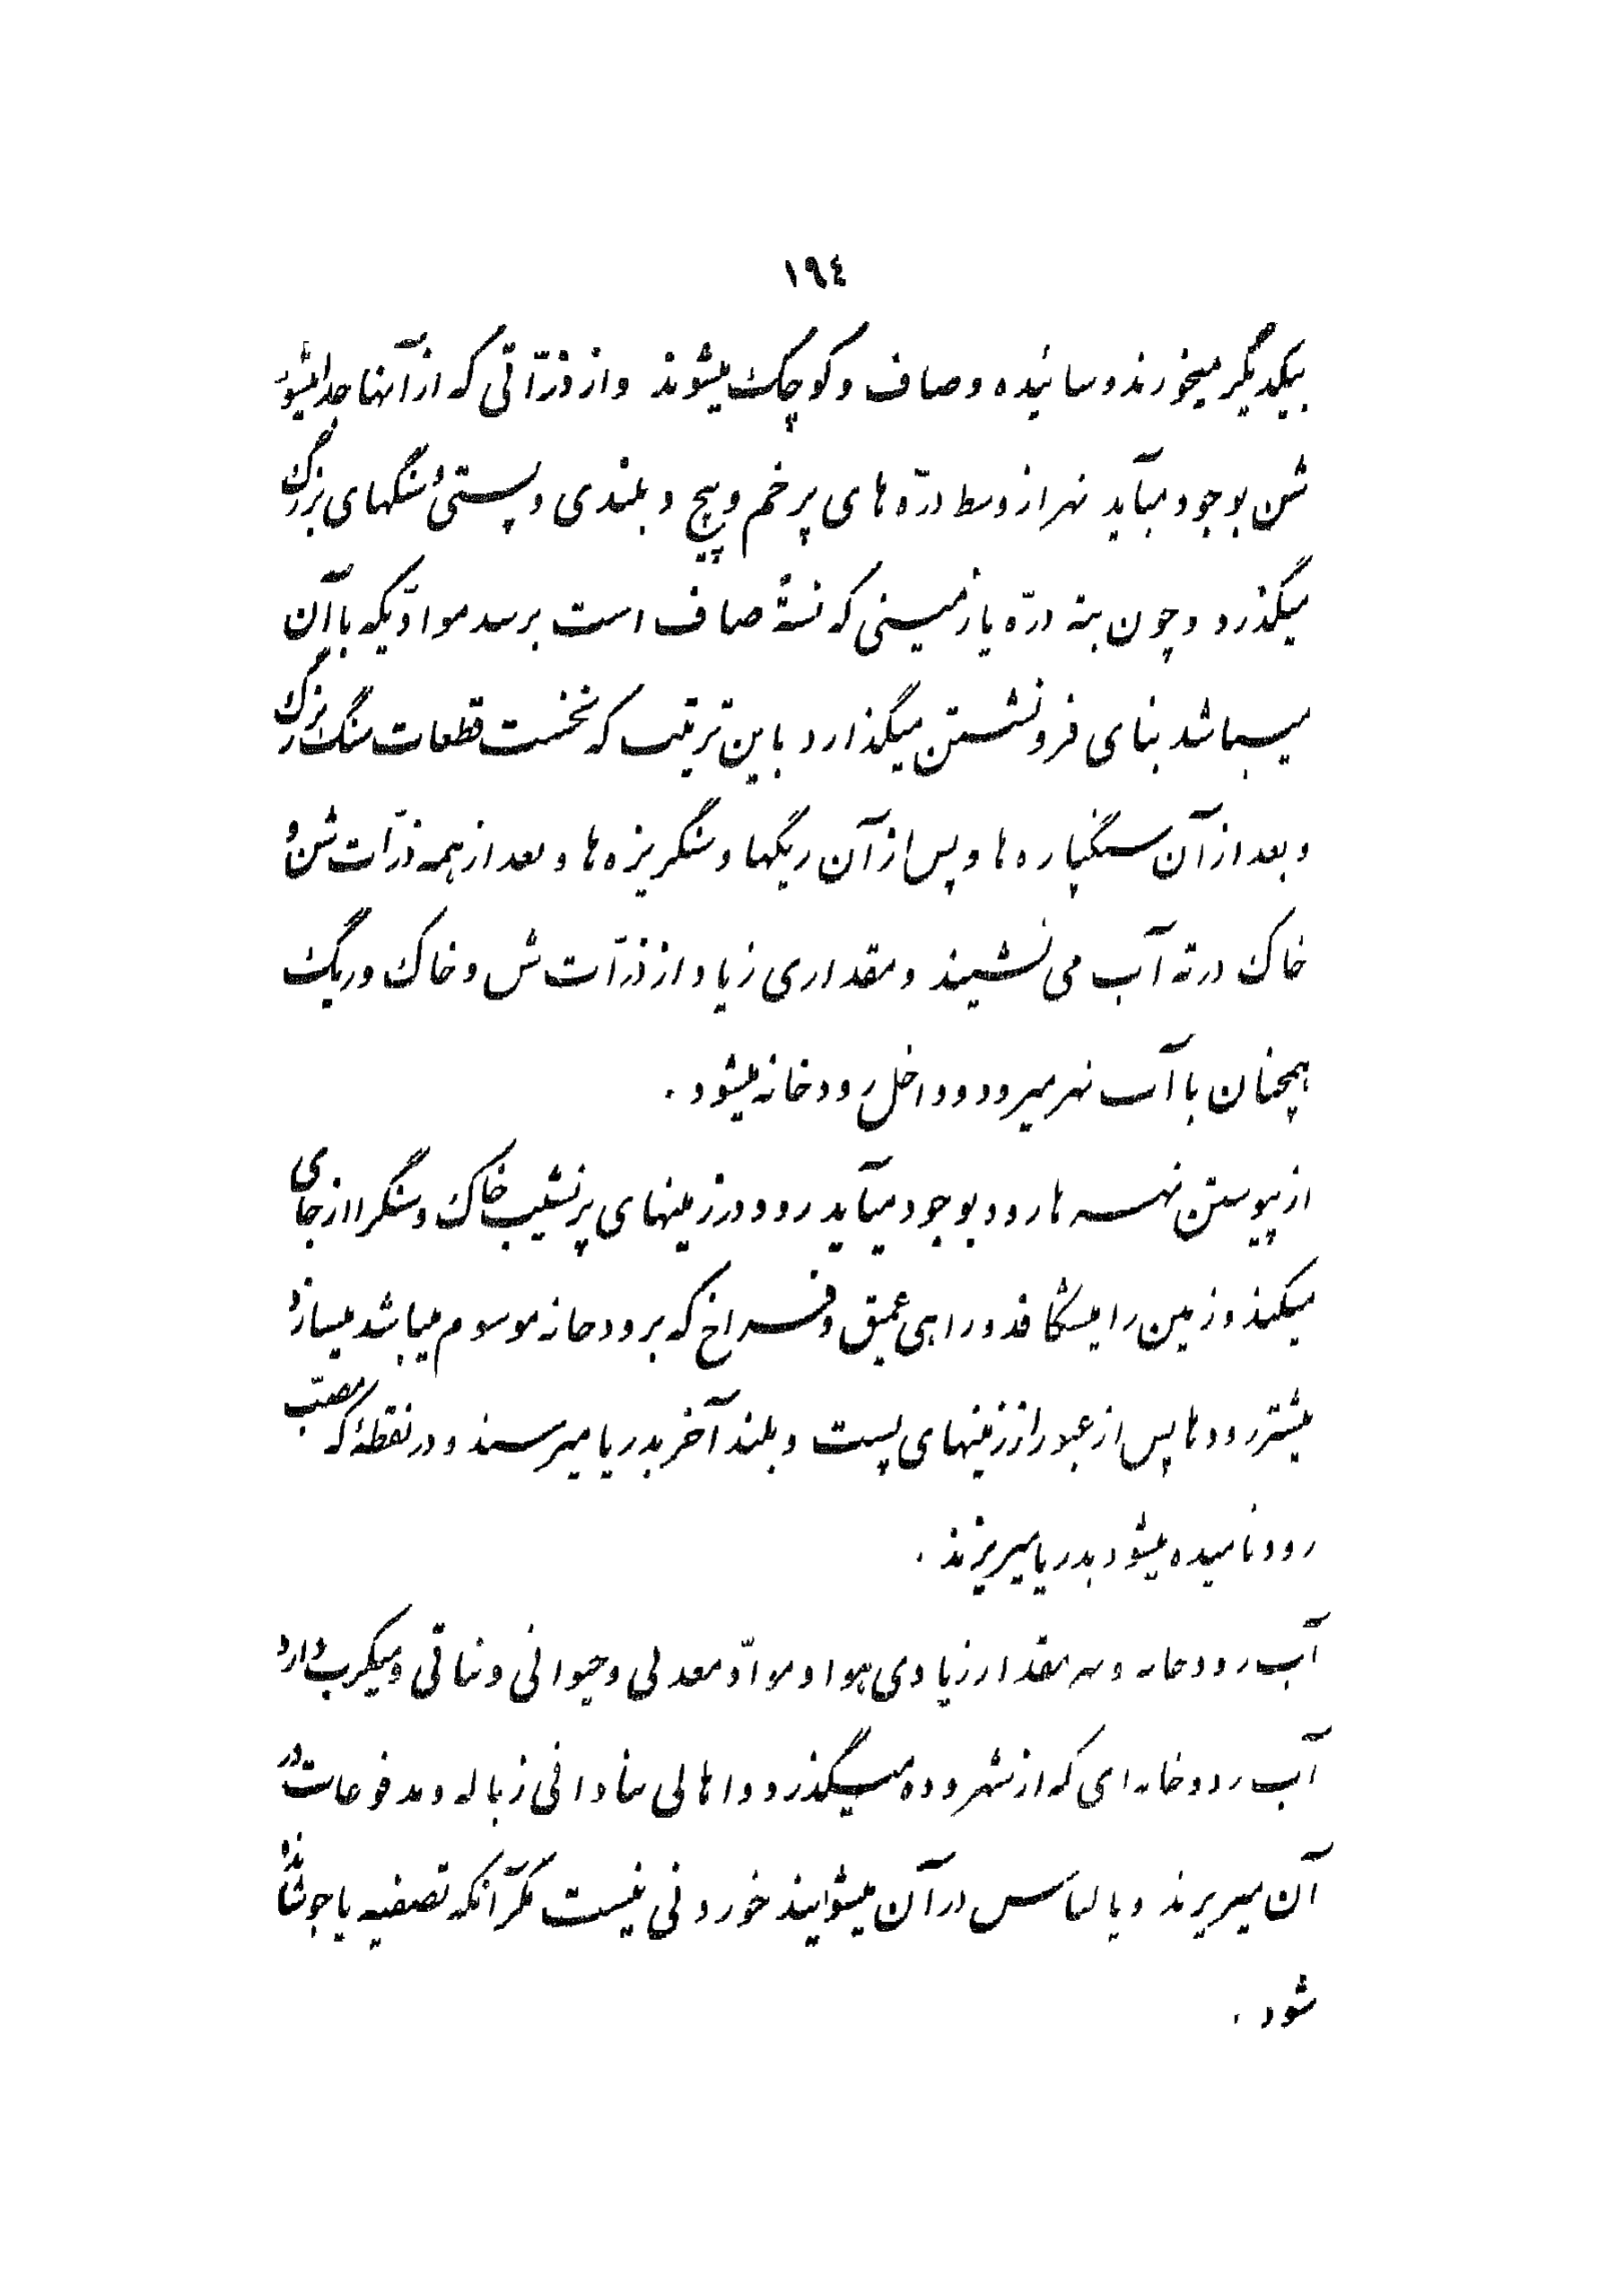 ١٩٤
بیکدیگر میخورند و سائیده و صاف و کوچک میشوند و از ذرّاتی که از آنها جدا میشود
شن بوجود میآید نهر از وسط درّه های پر خم و پیچ و بلندی و پستی سنگهای بزرگ
میگذرد و چون بته درّه یا زمینی که نسبةً صاف است برسد موادّیکه با آن
میباشد بنای فرونشستن میگذارد باین ترتیب که نخست قطعات سنگ بزرگ
و بعد از آن سنگپاره ها و پس از آن ریگها و سنگریزه ها و بعد از همه ذرّات شن و
خاک در ته آب می نشیند و مقداری زیاد از ذرّات شن و خاک و ریگ
همچنان با آب نهر میرود و داخل رودخانه میشود .
از پیوستن نهر ها رود بوجود میآید رود در زمینهای پرنشیب خاک و سنگ را از جای
میکند و زمین را میشکافد و راهی عمیق و فراخ که برودخانه موسوم میباشد میسازد
بیشتر رودها پس از عبور از زمینهای پست و بلند آخر بدریا میرسند و در نقطهٔ که مصبّ
رود نامیده میشود بدریا میریزند .
آب رودخانه همه مقدار زیادی هوا و موادّ معدنی و حیوانی و نباتی و میکرب دارد
آب رودخانه ای که از شهر و ده میگذرد و اهالی بنادانی زباله و مدفوعات در
آن میریزند و یا لباس در آن میشویند خوردنی نیست مگر آنکه تصفیه یا جوشانده
شود .